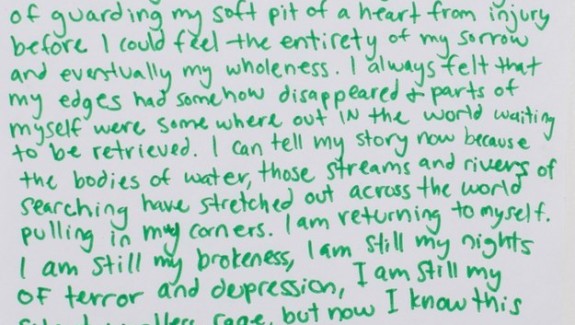 of guarding my soft pit of a heart from injury
before I could feel the entirety of my sorrow
and eventually my wholeness. I always felt that
my edges had somehow disappeared & parts of
myself were some where out in the world waiting
to be retrieved. I can tell my story now because
the bodies of water, those streams and rivers of
searching have stretched out across the world
pulling in my corners. I am returning to myself.
I am still my brokeness, I am still my nights
of terror and depression, I am still my
rage, but now I know this